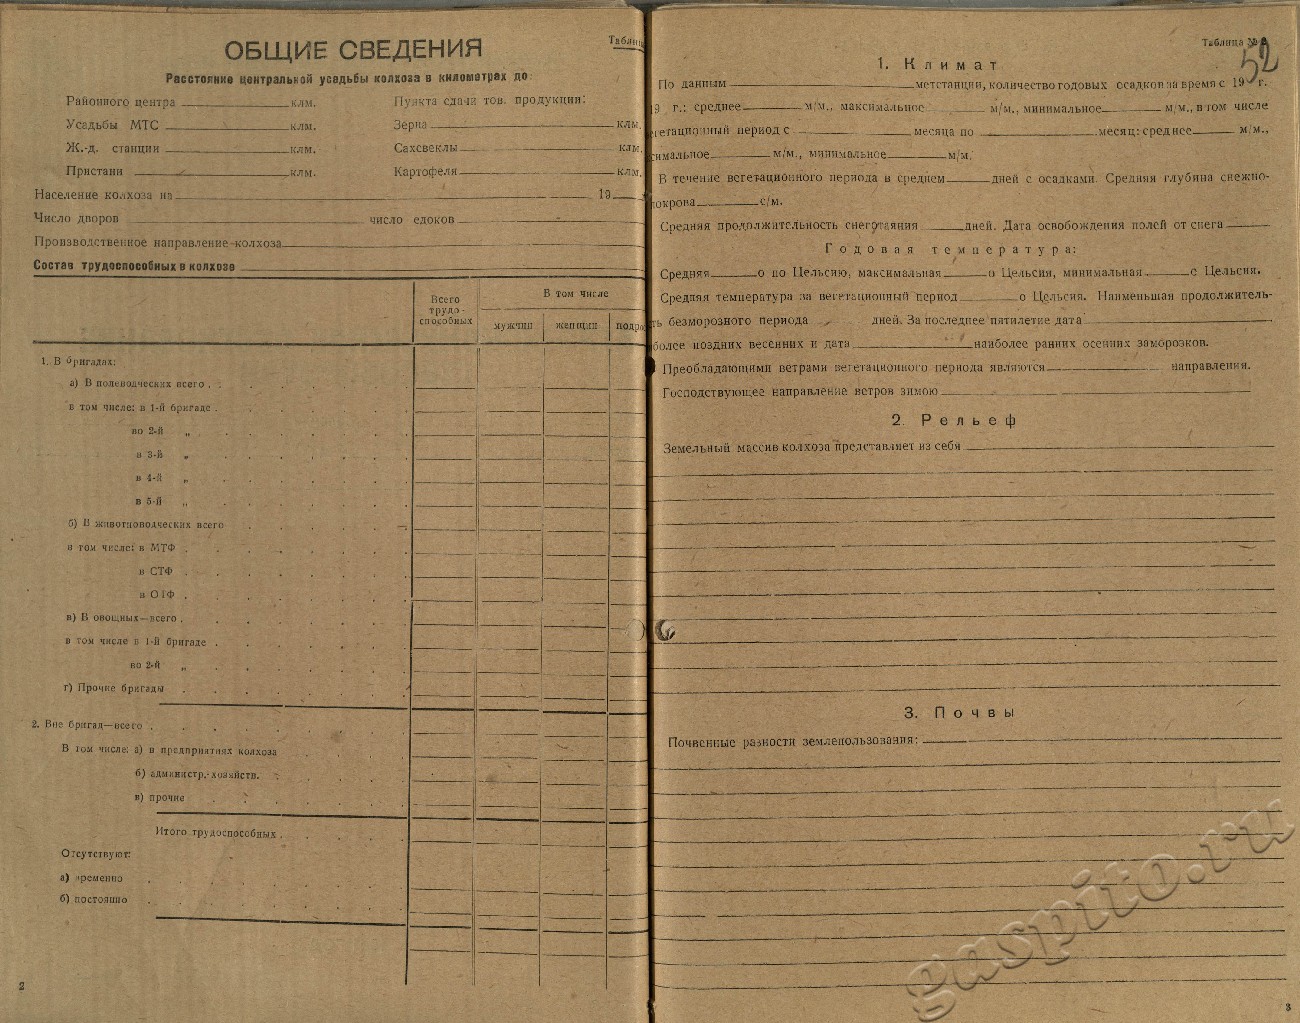 Таблица
ОБЩИЕ СВЕДЕНИЯ
Расстояние центральной усадьбы колхоза в километрах до:
Районного центра клм. Пункта сдачи тов. продукции:
Усадьбы МТС клм. Зерна клм.
Ж.-д. станции клм. Сахсвеклы клм.
Пристани клм. Картофеля клм.
Население колхоза на 19
Число дворов число едоков
Производственное направление колхоза
Состав трудоспособных в колхозе
Всего трудо-способных В том числе
мужчин женщин подро
1. В бригадах:
а) В полеводческих всего
в том числе: в 1-й бригаде
во 2-й „
в 3-й „
в 4-й „
в 5-й „
б) В животноводческих всего
в том числе: в МТФ
в СТФ
в ОТФ
в) В овощных—всего
в том числе в 1-й бригаде
во 2-й „
г) Прочие бригады
2. Вне бригад—всего
В том числе: а) в предприятиях колхоза
б) администр.-хозяйств.
в) прочие
Итого трудоспособных
Отсутствуют:
а) временно
б) постоянно
2
Таблица №
52
1. Климат
По данным метстанции, количество годовых осадков за время с 19 г.
19 г.: среднее м/м., максимальное м/м., минимальное м/м., в том числе
гетационный период с месяца по месяц: среднее м/м.,
симальное м/м., минимальное м/м.
В течение вегетационного периода в среднем дней с осадками. Средняя глубина снежно-
покрова с/м.
Средняя продолжительность снеготаяния дней. Дата освобождения полей от снега
Годовая температура:
Средняя о по Цельсию, максимальная о Цельсия, минимальная о Цельсия.
Средняя температура за вегетационный период о Цельсия. Наименьшая продолжитель-
ть безморозного периода дней. За последнее пятилетие дата
более поздних весенних и дата наиболее ранних осенних заморозков.
Преобладающими ветрами вегетационного периода являются направления.
Господствующее направление ветров зимою
2. Рельеф
Земельный массив колхоза представляет из себя
3. Почвы
Почвенные разности землепользования:
gaspito.ru
3